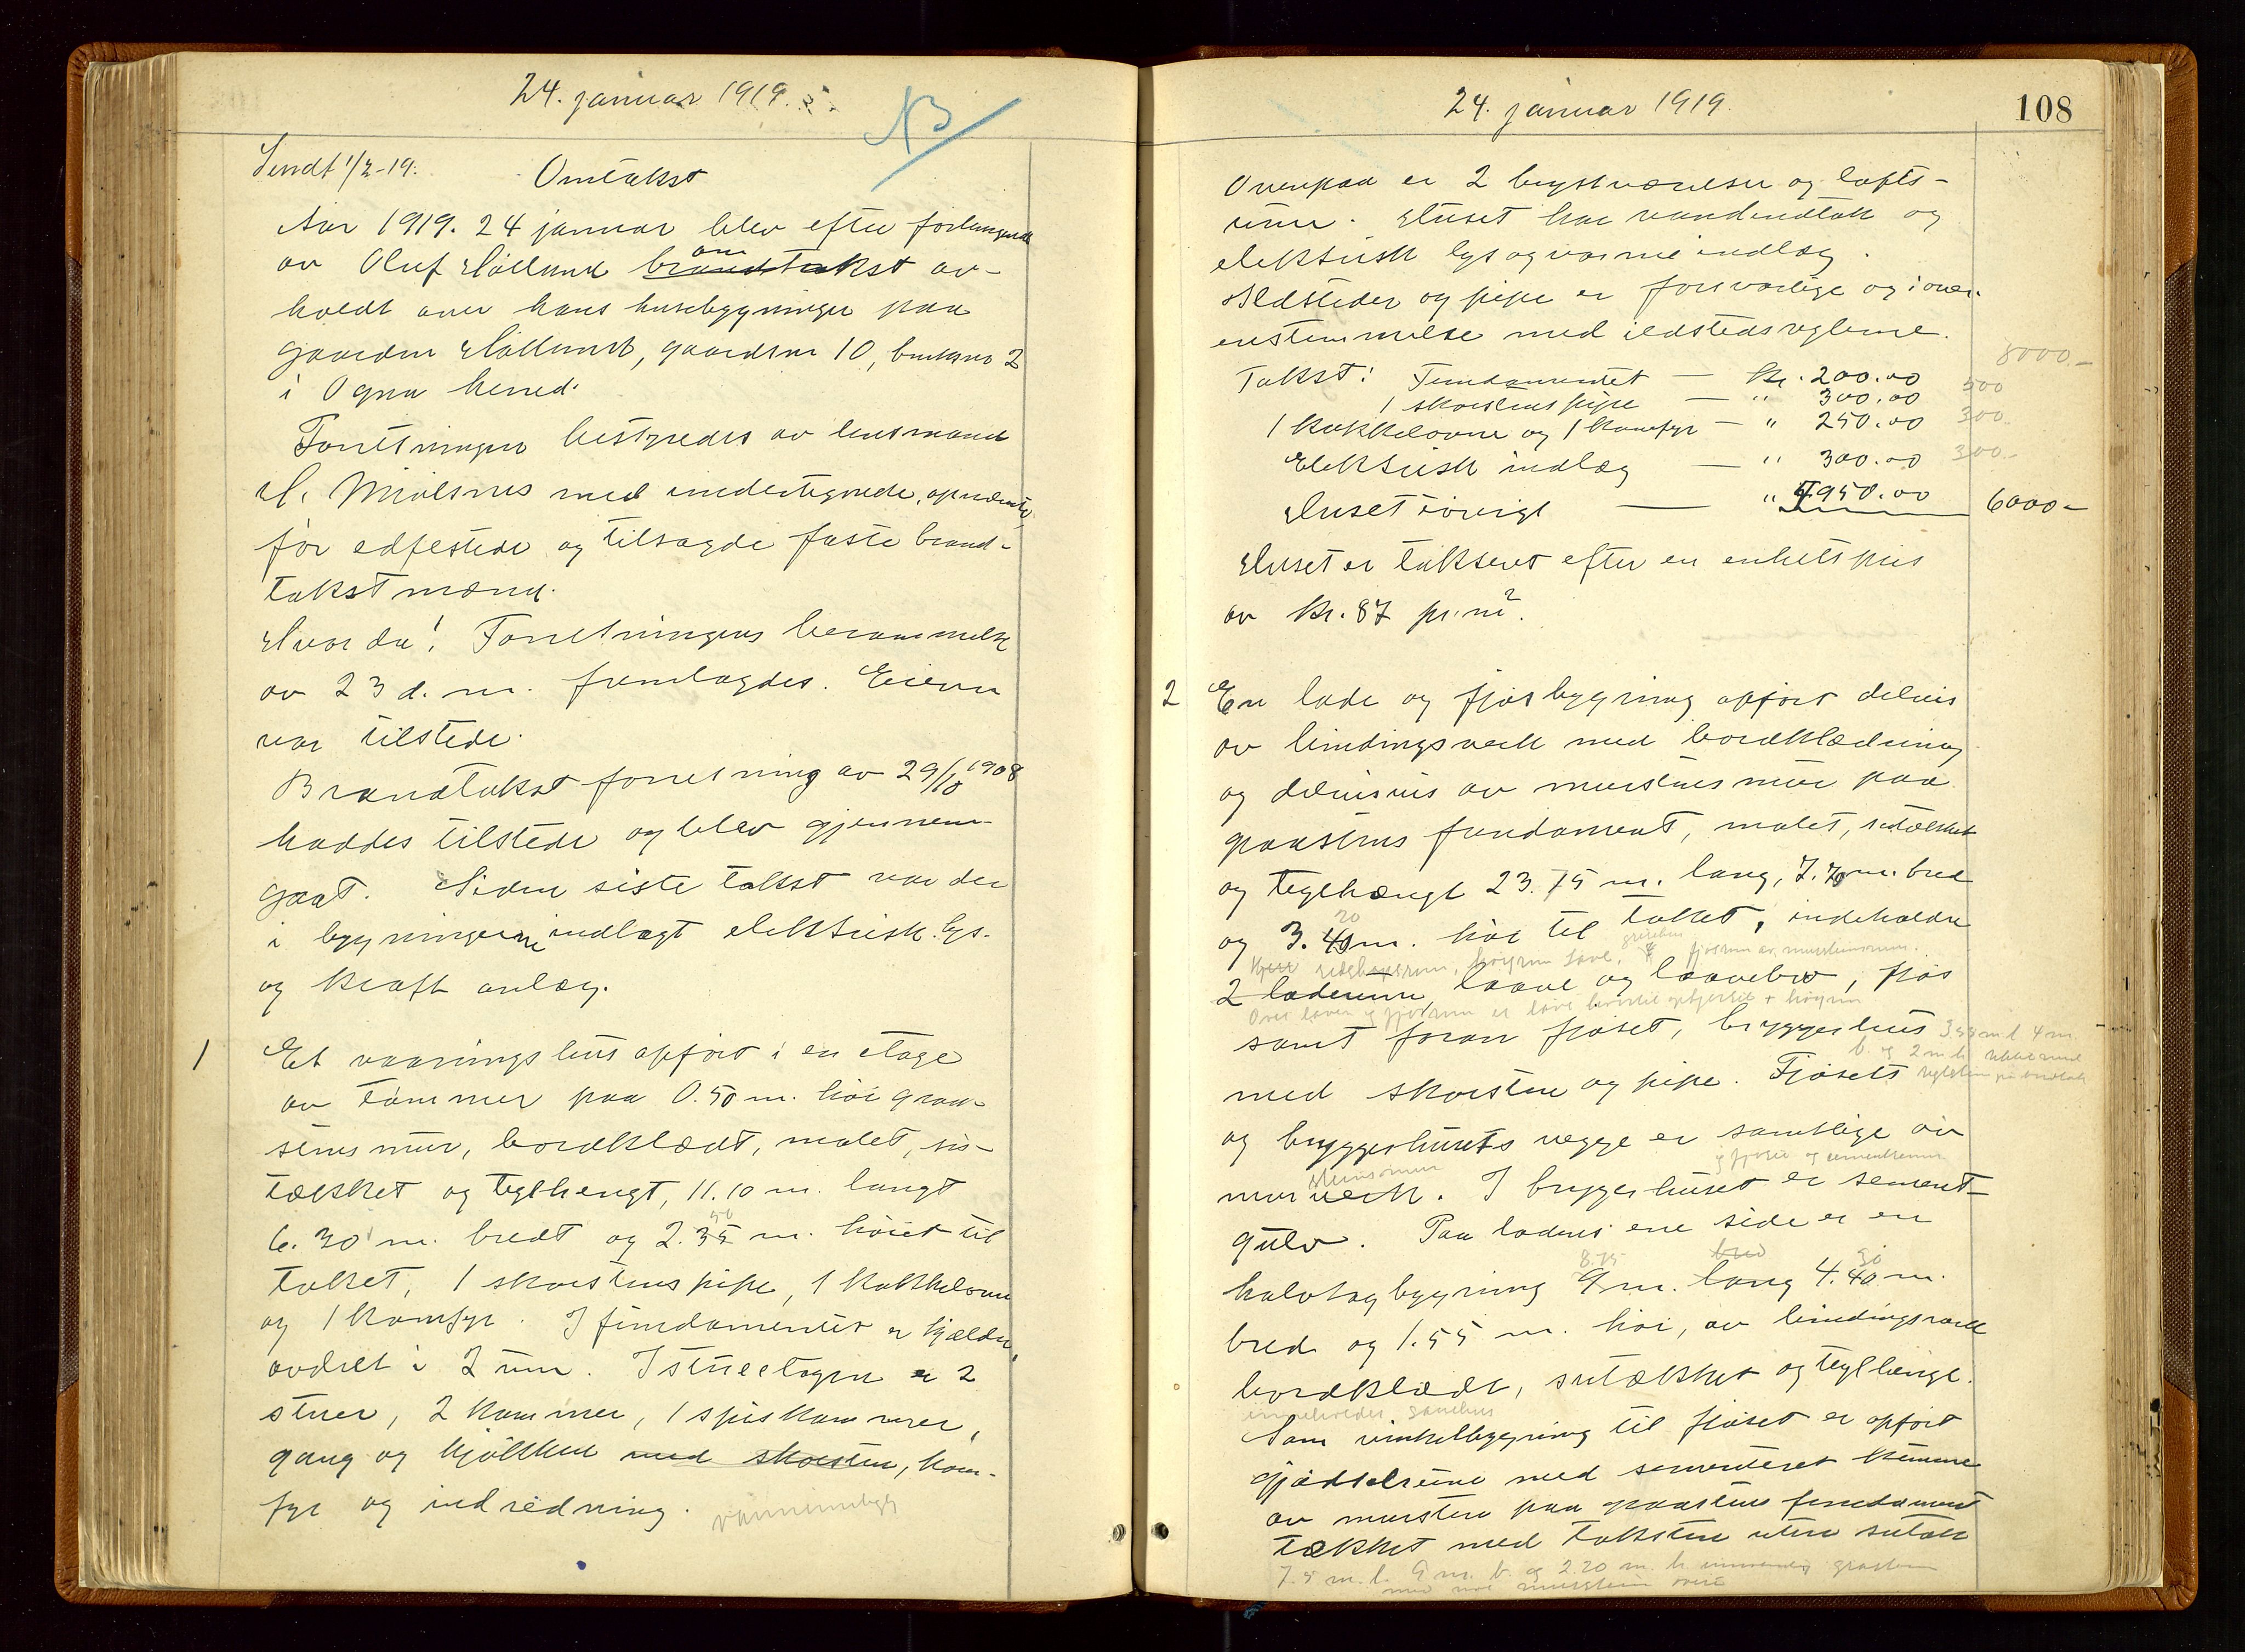 24. januar 1919.
NB
Sendt 1/2-19. Omtakst
Aar 1919. 24 januar blev efter forlangende
av Oluf Hølland brandtakst av-
om
holdt over hans husebygninger paa
gaarden Hølland, gaardsnr 10, bruksnr 2
i Ogna herred.
Forretningen bestyredes av lensmand
med undertegnede, opnævnte,
før edfestede og tilsagde faste brand-
takstmænd.
Hvorda! Forretningens berammelse
av 23 d. m. fremlagdes. Eieren
var tilstede.
Brandtakst forretning av 29/10 1908
haddes tilstede og blev gjennem-
gaat. Siden siste takst var der
i bygningerne indlagt elektrisk lys-
og kraft anlæg.
1 Et vaaningshus opført i en etage
av tømmer paa 0.50 m. høi graa-
stens mur, bordklædt, malet, su-
tækket og teglhengt, 11.10 m. langt
6.30 m. bredt og 2.35 m. høiet til
taket, 1 skorstenspipe, 1 kakkelovn
og 1 komfyr. I fundamentet er kjælder,
avdelt i 2 rum. I stueetagen er 2
stuer, 2 kammer, 1 spiskammer,
gang og kjøkken med skorsten, kom-
fyr og indredning.
24. januar 1919.
108
Ovenpaa er 2 brystværelser og lofts-
rum. Huset har vandindtak og
elektrisk lys og varme indlæg.
Ildsteder og pipe er forsvarlige og i over-
enstemmelse med ildstedsreglerne.
8000.-
Takst: Fundamentet — Kr. 200.00
500
1 skorstenspipe — " 300.00
1 kakkelovne og 1 komfyr — " 250.00 300.
Elektrisk indlæg — " 300.00 300.-
Huset iøvrigt — " 4950.00 6000-
Huset er takseret efter en enhetspris
av Kr. 87 pr. m².
2 En lade og fjøsbygning opført delvis
av bindingsverk med bordklædning
og delvis av murstens mur paa
graastens fundament, malet, sutækket
og teglhængt 23.75 m. lang, 7.70 m. bred
og 3.40 m. høi til taket, indeholder
20
2 laderum, laave og laavebro, fjøs
samt foran fjøset, bryggerhus
med skorsten og pipe. Fjøsets
og bryggerhusets vegge er samtlige av
murverk. I bryggerhuset er sement-
gulv. Paa ladens ene side er en
8.75 bred 30
halvtagbygning 9 m. lang 4.40 m.
bred og 1.55 m. høi, av bindingsverk
bordklædt, sutækket og teglhængt.
Som vinkelbygning til fjøset er opført
gjødselrum med sementeret kumme
av mursten paa graastens fundament
tækket med taksten uten sutak
7.5 m. l. 9 m. b. og 2.20 m. h